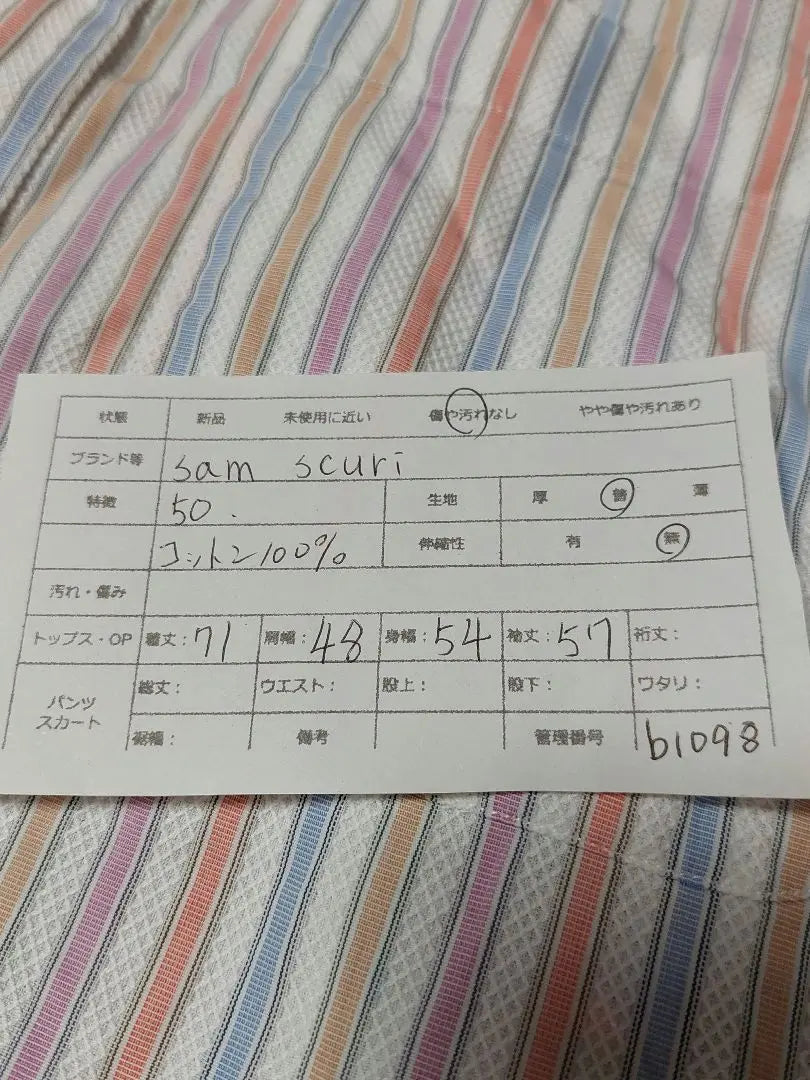 状態 新品 未使用に近い 傷や汚れなし やや傷や汚れあり
ブランド等 sam scuri
特徴 50. 生地 厚 普 薄
コットン100% 伸縮性 有 無
汚れ・傷み
トップス・OP 着丈：71 肩幅：48 身幅：54 袖丈：57 裄丈：
パンツ スカート 総丈： ウエスト： 股上： 股下： ワタリ：
裾幅： 備考 管理番号 b1098